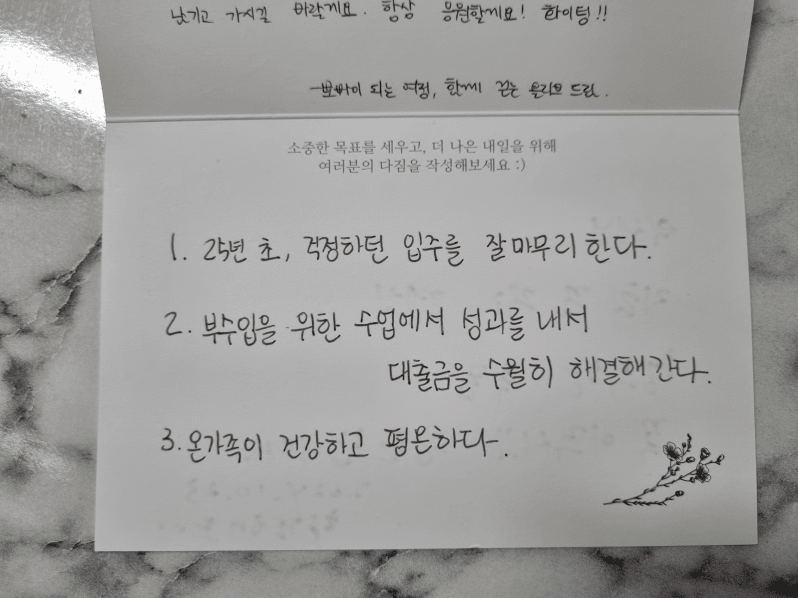 남기고 가시길 바랄게요. 항상 응원할게요! 화이팅!!
되는 여정, 함께 걷는 올리브 드림.
소중한 목표를 세우고, 더 나은 내일을 위해
여러분의 다짐을 작성해보세요 :)
1. 25년 초, 걱정하던 입주를 잘 마무리한다.
2. 부수입을 위한 수업에서 성과를 내서
대출금을 수월히 해결해간다.
3. 온가족이 건강하고 평온하다.